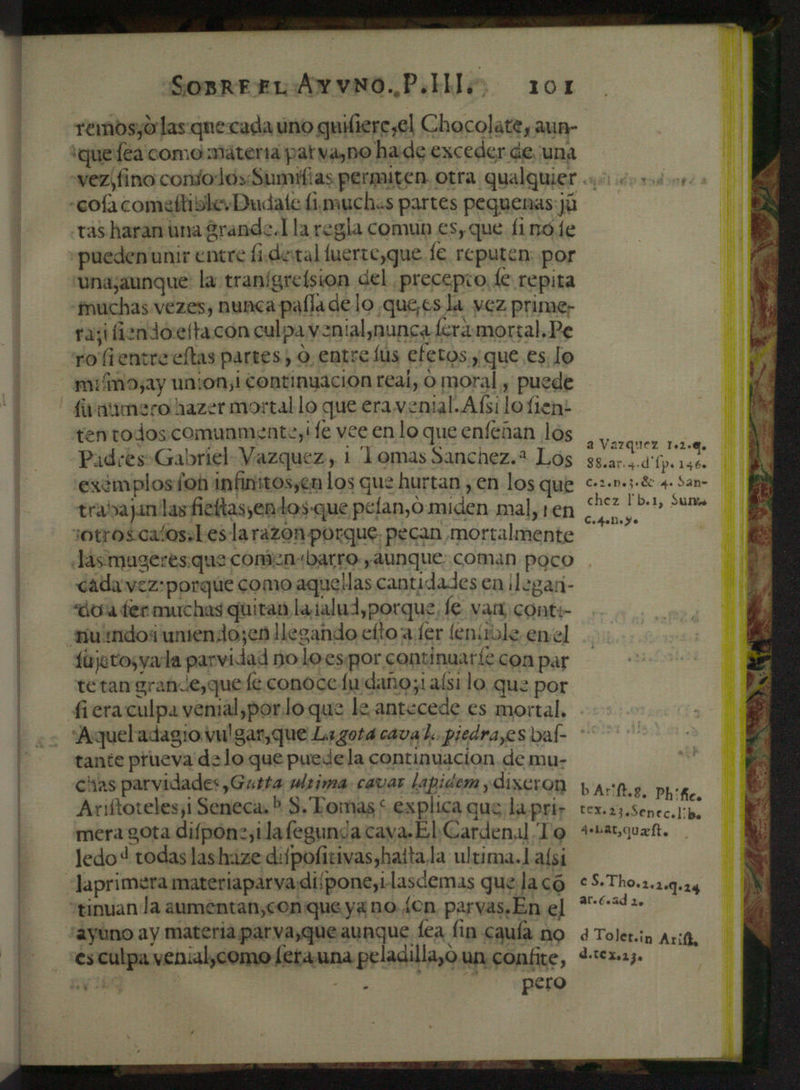 SOBRE EL AYVNO. P.III. 101
remos,ò las que cada uno quiſiere,el Chocolate, aun-
que ſea como materia parva,no ha de exceder de una
vez,ſino como los Sumiſtas permiten otra qualquier
coſa comeſtible. Dudaſe ſi muchas partes pequenas jũ
tas haran una grande.I la regla comun es, que ſi no ſe
pueden unir entre ſi de tal ſuerte,que ſe reputen por
una,aunque la tranſgreſsion del precepto ſe repita
muchas vezes, nunca paſſa de lo que es la vez prime-
ra;i ſiendo eſta con culpa venial,nunca ſerà mortal.Pe
ro ſi entre eſtas partes, ò entre ſus efetos, que es lo
miſmo,ay union,i continuacion real, ò moral, puede
ſu numero hazer mortal lo que era venial.Aſsi lo ſien-
ten todos comunmente,i ſe vee en lo que enſeñan los
Padres Gabriel Vazquez, i Tomas Sanchez.ª Los
exemplos ſon infinitos,en los que hurtan, en los que
trabajan las fieſtas,en los que peſan,ò miden mal, i en
otros caſos.I es la razon porque pecan mortalmente
las mugeres que comen barro, aunque coman poco
cada vez:porque como aquellas cantidades en llegan-
do a ſer muchas quitan la ſalud,porque ſe van conti-
nuando i uniendo;en llegando eſto a ſer ſenſible en el
ſujeto,ya la parvidad no lo es,por continuarſe con par
te tan grande,que ſe conoce ſu daño;i aſsi lo que por
ſi era culpa venial,por lo que le antecede es mortal.
Aquel adagio vulgar,que Lagota cava la piedra,es baſ-
tante prueva de lo que puede la continuacion de mu-
chas parvidades,Gutta ultima cavat lapidem, dixeron
Ariſtoteles,i Seneca. b S.Tomas c explica que la pri-
mera gota diſpone,i la ſegunda cava.El Cardenal To
ledo d todas las haze diſpoſitivas,haſta la ultima.I aſsi
la primera materia parva diſpone,i las demas que la cõ
tinuan la aumentan,con que ya no ſon parvas.En el
ayuno ay materia parva,que aunque ſea ſin cauſa no
es culpa venial,como ſera una peladilla,ò un confite,
pero
a Vazquez 1.2.q.
88.ar.4.diſp. 146.
c.2.n.3.& 4. San-
chez l b.1, Sum.
c.4.n.9.
b Ariſt.8. Phiſic.
tex.23.Senec.lib.
4.nat,quæſt.
c S.Tho.2.2.q.24
ar.6.ad 2.
d Tolet.in Ariſt.
d.tex.23.